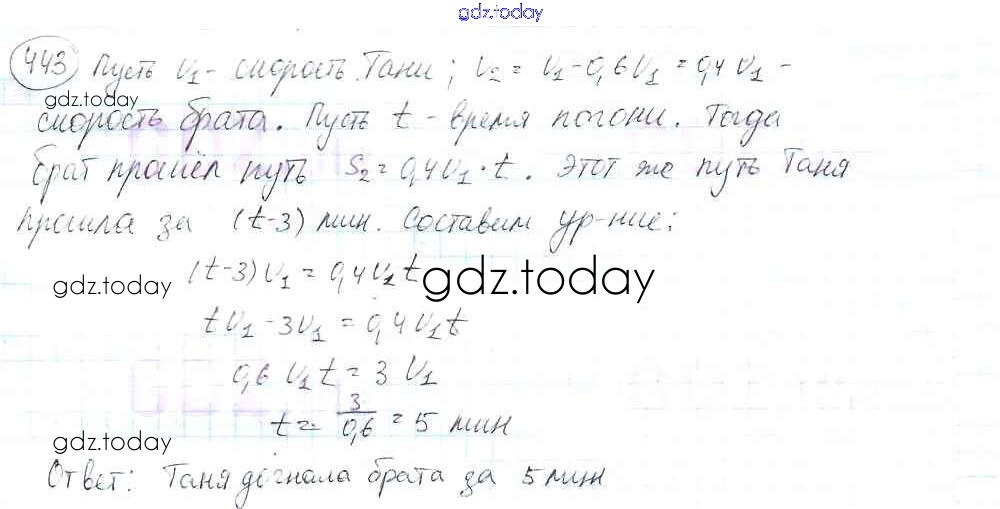 gdz.today
443 Пусть v₁ - скорость Тани; v₂ = v₁ - 0,6v₁ = 0,4v₁ -
gdz.today
скорость брата. Пусть t - время погони. Тогда
брат прошёл путь S₂ = 0,4v₁ · t. Этот же путь Таня
прошла за (t-3) мин. Составим ур-ние:
(t-3)v₁ = 0,4v₁t
gdz.today gdz.today
tv₁ - 3v₁ = 0,4v₁t
0,6 v₁t = 3 v₁
t = 3/0,6 = 5 мин
gdz.today
Ответ: Таня догнала брата за 5 мин